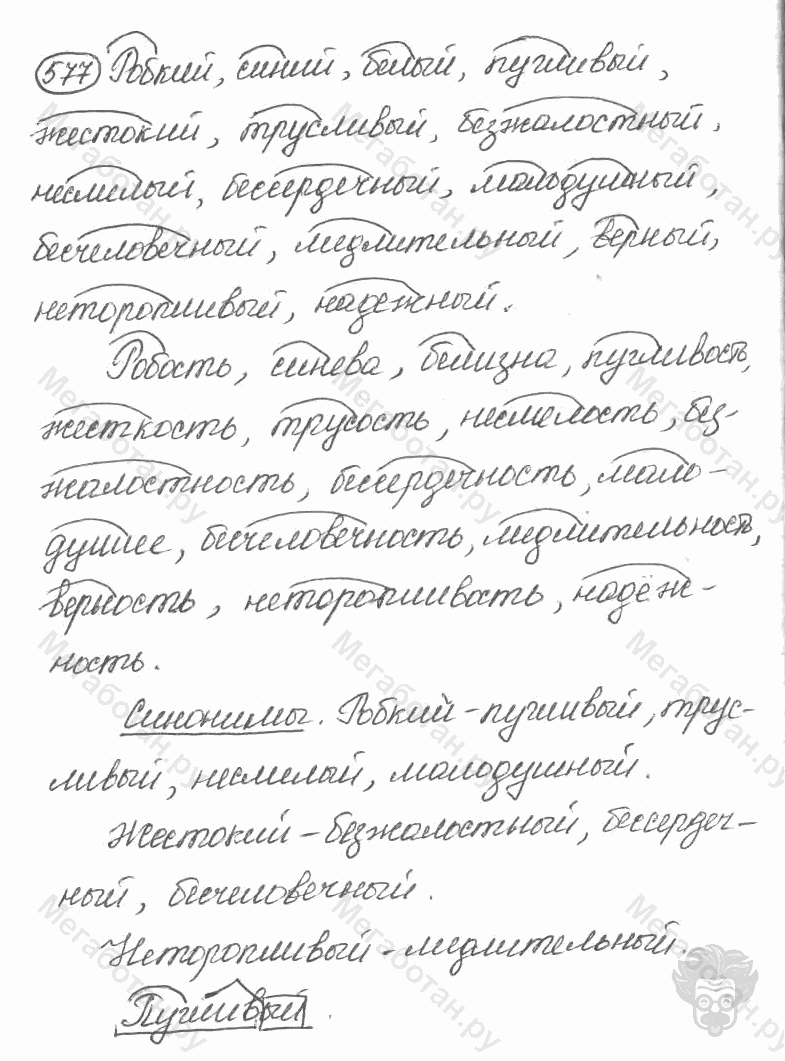 577 Робкий, синий, белый, пугливый,
жестокий, трусливый, безжалостный,
несмелый, бессердечный, малодушный,
бесчеловечный, медлительный, верный,
неторопливый, надежный.
Робость, синева, белизна, пугливость,
жесткость, трусость, несмелость, без-
жалостность, бессердечность, мало-
душие, бесчеловечность, медлительность,
верность, неторопливость, надёж-
ность.
Синонимы. Робкий - пугливый, трус-
ливый, несмелый, малодушный.
Жестокий - безжалостный, бессердеч-
ный, бесчеловечный.
Неторопливый - медлительный.
Пугливый.
Мегаботан.ру